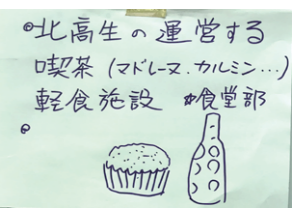 ◦北高生の運営する
喫茶(マドレーヌ.カルミン…)
軽食施設 食堂部
◦